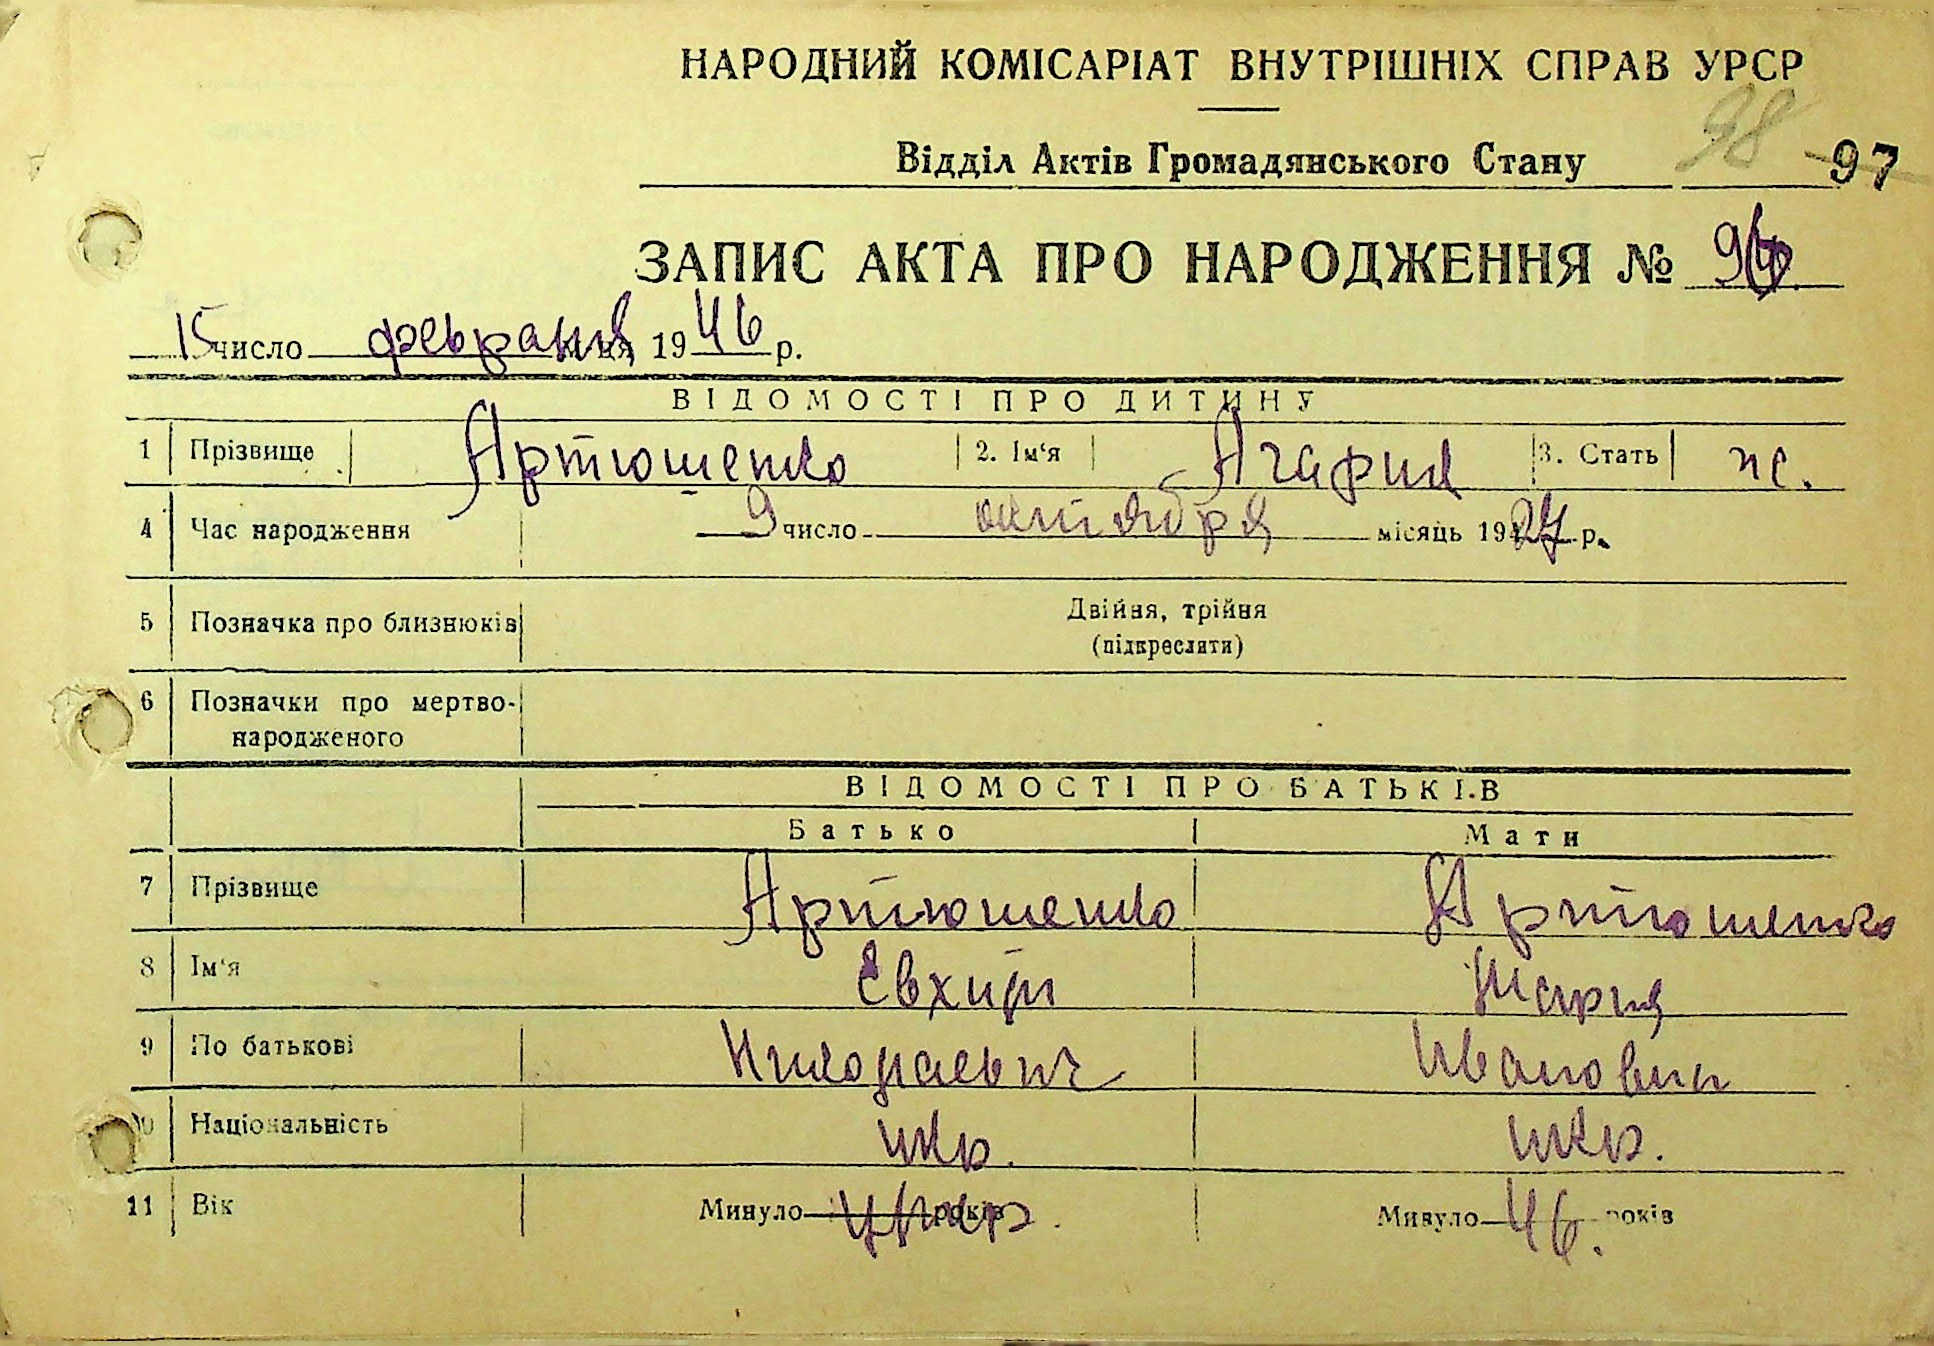 НАРОДНИЙ КОМІСАРІАТ ВНУТРІШНІХ СПРАВ УРСР
98
Відділ Актів Громадянського Стану 97
ЗАПИС АКТА ПРО НАРОДЖЕННЯ №
15 число февраля 1946 р.
ВІДОМОСТІ ПРО ДИТИНУ
1 Прізвище Артюшенко 2. Ім'я Агафия 3. Стать ж.
4 Час народження 9 число октября місяць 1927 р.
5 Позначка про близнюків Двійня, трійня
(підкресляти)
6 Позначки про мертво-
народженого
ВІДОМОСТІ ПРО БАТЬКІВ
Батько Мати
7 Прізвище Артюшенко Артюшенко
8 Ім'я Евхим Мария
9 По батькові Николаевич Ивановна
10 Національність укр. укр.
11 Вік Минуло умер. років Минуло 46. років